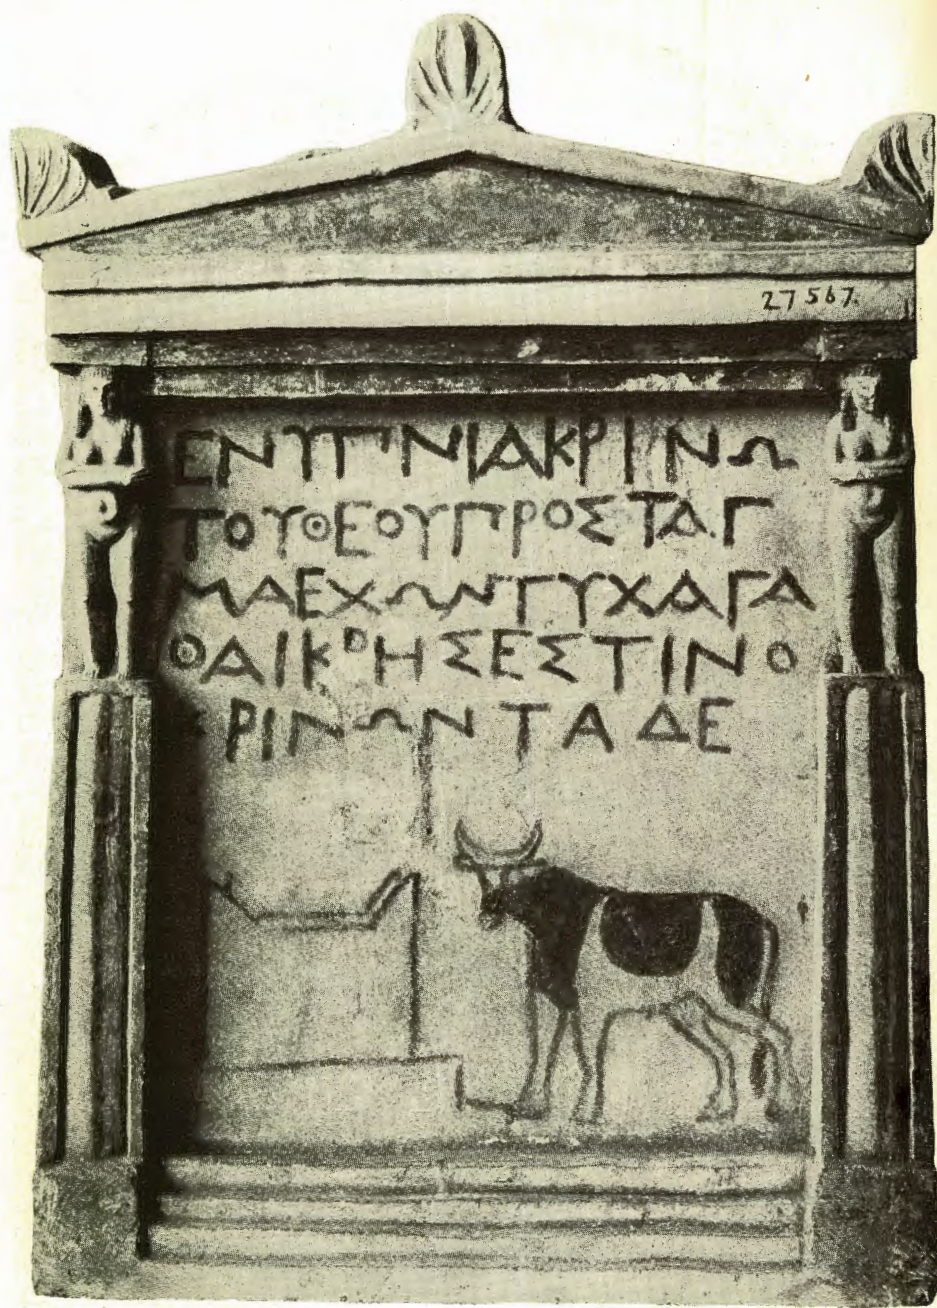 27567.
ΕΝΥΠΝΙΑΚΡΙΝΩ
ΤΟΥΘΕΟΥΠΡΟΣΤΑΓ
ΜΑΕΧΩΝΤΥΧΑΓΑ
ΘΑΙΚΡΗΣΕΣΤΙΝΟ
ΚΡΙΝΩΝΤΑΔΕ